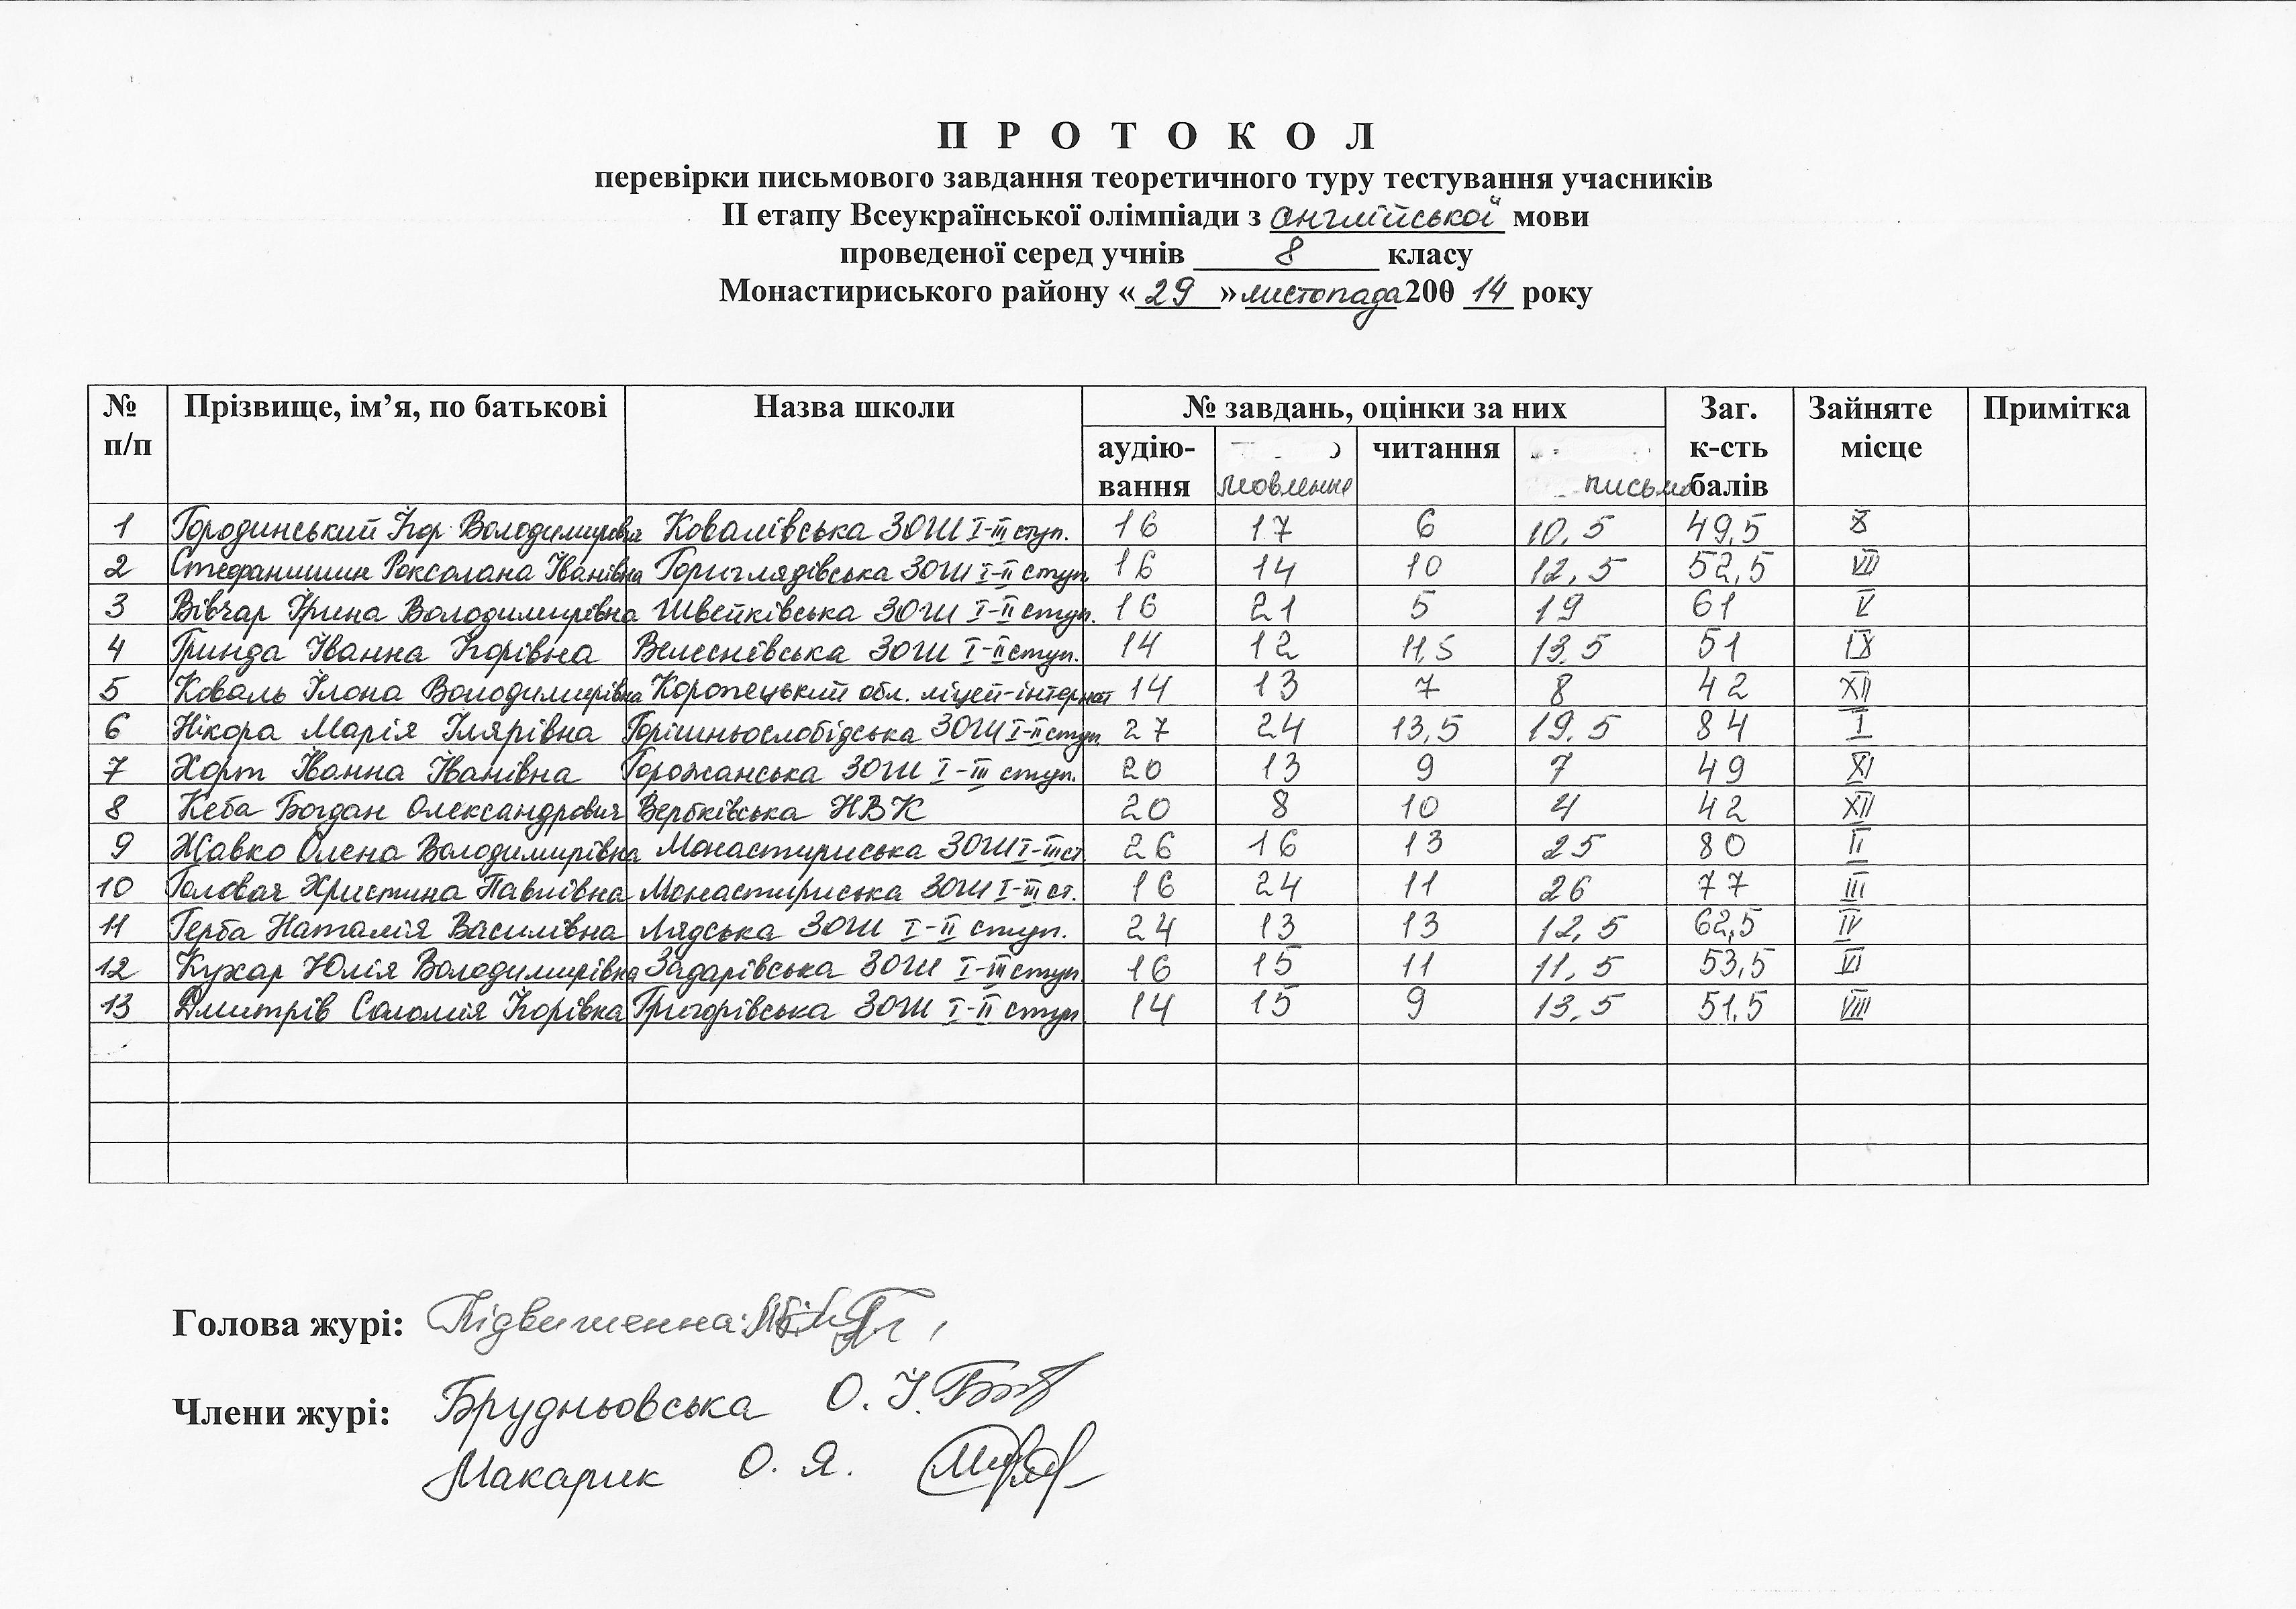 П Р О Т О К О Л
перевірки письмового завдання теоретичного туру тестування учасників
ІІ етапу Всеукраїнської олімпіади з англійської мови
проведеної серед учнів 8 класу
Монастириського району «29» листопада 200 14 року
№ п/п Прізвище, ім’я, по батькові Назва школи № завдань, оцінки за них Заг. к-сть балів Зайняте місце Примітка
аудію-вання мовлення читання письмо
1 Городинський Ігор Володимирович Ковалівська ЗОШ І-ІІІ ступ. 16 17 6 10,5 49,5 X
2 Стефанишин Роксолана Іванівна Гориглядівська ЗОШ І-ІІ ступ. 16 14 10 12,5 52,5 VII
3 Вівчар Ірина Володимирівна Швейківська ЗОШ І-ІІ ступ. 16 21 5 19 61 V
4 Гринда Іванна Ігорівна Велеснівська ЗОШ І-ІІ ступ. 14 12 11,5 13,5 51 IX
5 Коваль Ілона Володимирівна Коропецький обл. ліцей-інтернат 14 13 7 8 42 XII
6 Нікора Марія Ілярівна Горішньослобідська ЗОШ І-ІІ ступ. 27 24 13,5 19,5 84 I
7 Хорт Іванна Іванівна Горожанська ЗОШ І-ІІІ ступ. 20 13 9 7 49 XI
8 Кеба Богдан Олександрович Вербківська НВК 20 8 10 4 42 XII
9 Жавко Олена Володимирівна Монастириська ЗОШ І-ІІІ ст. 26 16 13 25 80 II
10 Головач Христина Павлівна Монастириська ЗОШ І-ІІІ ст. 16 24 11 26 77 III
11 Герба Наталія Василівна Лядська ЗОШ І-ІІ ступ. 24 13 13 12,5 62,5 IV
12 Кухар Юлія Володимирівна Задарівська ЗОШ І-ІІІ ступ. 16 15 11 11,5 53,5 VI
13 Дмитрів Соломія Ігорівна Григорівська ЗОШ І-ІІ ступ. 14 15 9 13,5 51,5 VIII
Голова журі:
Члени журі: Брудньовська О. І.
Макарик О. Я.